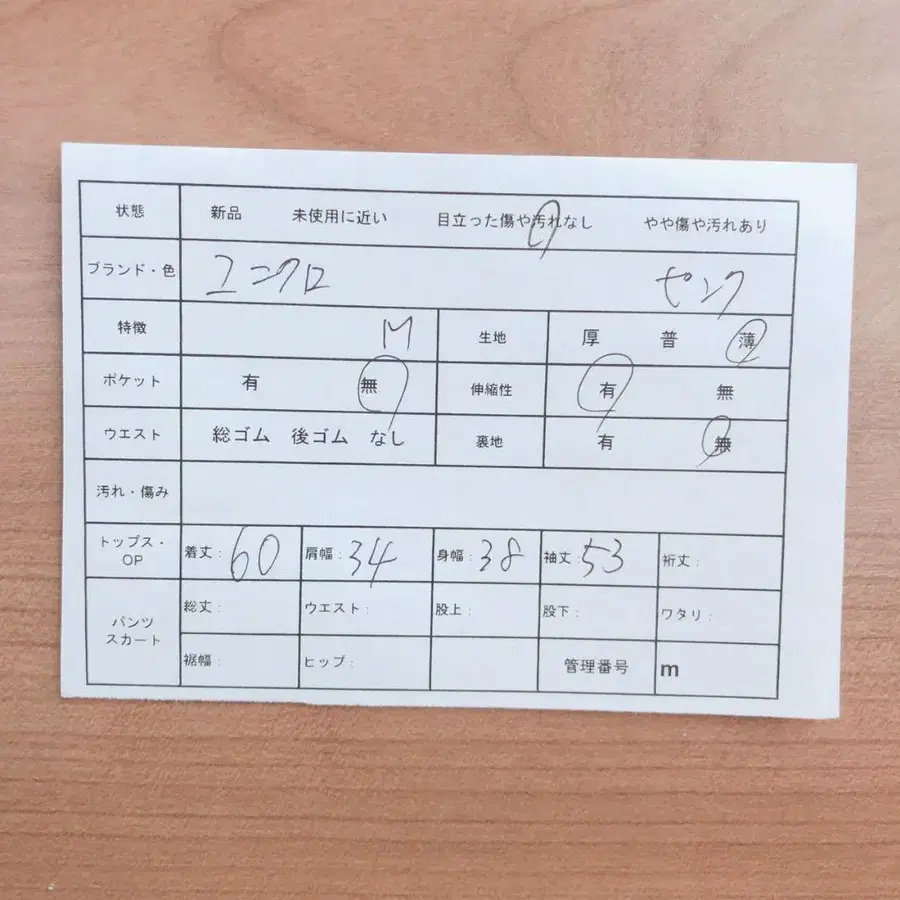 状態 新品 未使用に近い 目立った傷や汚れなし やや傷や汚れあり
ブランド・色 ユニクロ ピンク
特徴 M 生地 厚 普 薄
ポケット 有 無 伸縮性 有 無
ウエスト 総ゴム 後ゴム なし 裏地 有 無
汚れ・傷み
トップス・OP 着丈: 60 肩幅: 34 身幅: 38 袖丈: 53 裄丈:
パンツ スカート 総丈: ウエスト: 股上: 股下: ワタリ:
裾幅: ヒップ: 管理番号 m